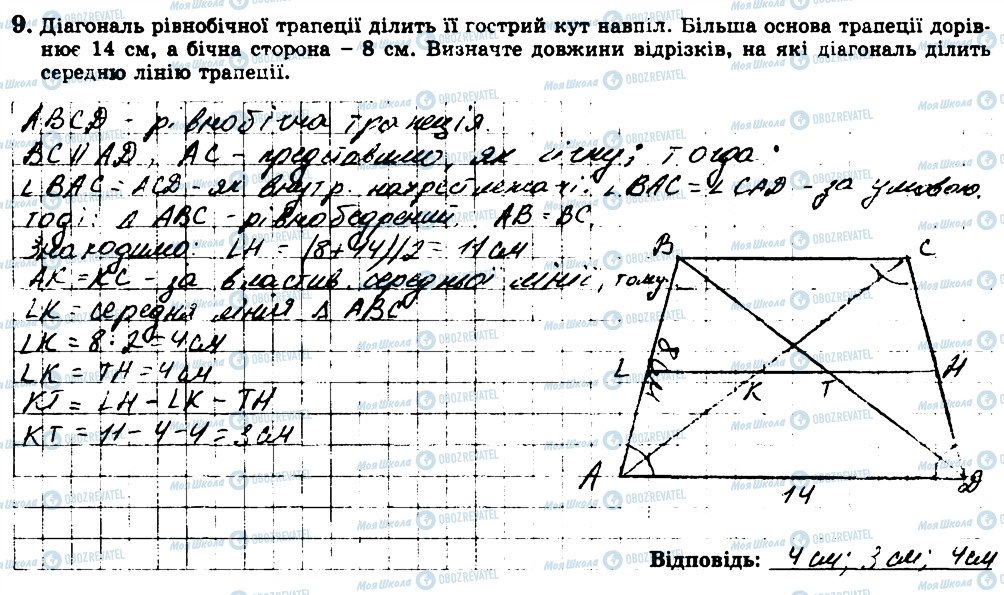 9. Діагональ рівнобічної трапеції ділить її гострий кут навпіл. Більша основа трапеції дорів-
нює 14 см, а бічна сторона – 8 см. Визначте довжини відрізків, на які діагональ ділить
середню лінію трапеції.
ABCD - рівнобічна трапеція.
BC || AD, AC - представимо, як січну; тогда
∠BAC = ACD - як внутр. нахрестлежачі. ∠BAC = ∠CAD - за умовою.
тоді: Δ ABC - рівнобедрений. AB = BC.
Знаходимо: LH = (8+14)/2 = 11 см
AK = KC - за властив. середньої лінії, тому
LK = середня лінія Δ ABC
LK = 8 : 2 = 4 см
LK = TH = 4 см
KT = LH - LK - TH
KT = 11 - 4 - 4 = 3 см
B C
8
L K T H
A D
14
Відповідь: 4 см; 3 см; 4 см
Моя Школа OBOZREVATEL